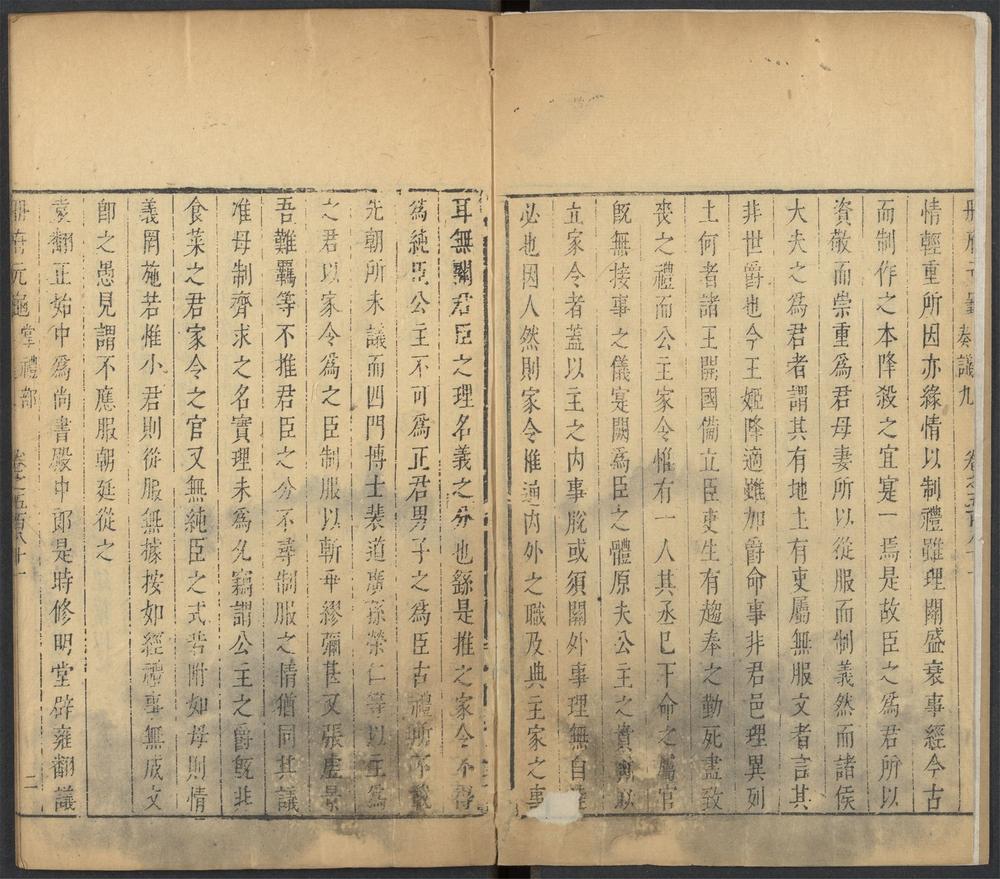 冊府元龜 奏議九 卷之五百八十一
情輕重所因亦緣情以制禮雖理關盛衰事經今古
而制作之本降殺之宜寔一焉是故臣之爲君所以
資敬而崇重爲君母妻所以從服而制義然而諸侯
大夫之爲君者謂其有地土有吏屬無服文者言其
非世爵也今王姬降適雖加爵命事非君邑理異列
土何者諸王開國備立臣吏生有趨奉之勤死盡致
喪之禮而公主家令惟有一人其丞已下命之屬官
旣無接事之儀寔闕爲臣之體原夫公主之貴所以
立家令者蓋以主之內事脫或須關外事理無自達
必也因人然則家令惟通內外之職及典主家之事
耳無關君臣之理名義之分也繇是推之家令不得
爲純臣公主不可爲正君男子之爲臣古禮所不載
先朝所未議而四門博士裴道廣孫榮仁等以主爲
之君以家令爲之臣制服以斬乖繆彌甚又張虛景
吾難羈等不推君臣之分不尋制服之情猶同其議
准母制齊求之名實理未爲允竊謂公主之爵旣非
食菜之君家令之官又無純臣之式若附如母則情
義罔施若惟小君則從服無據按如經禮事無成文
卽之愚見謂不應服朝廷從之
袁翻正始中爲尚書殿中郎是時修明堂辟雍翻議
冊府元龜掌禮部 卷之五百八十一 二